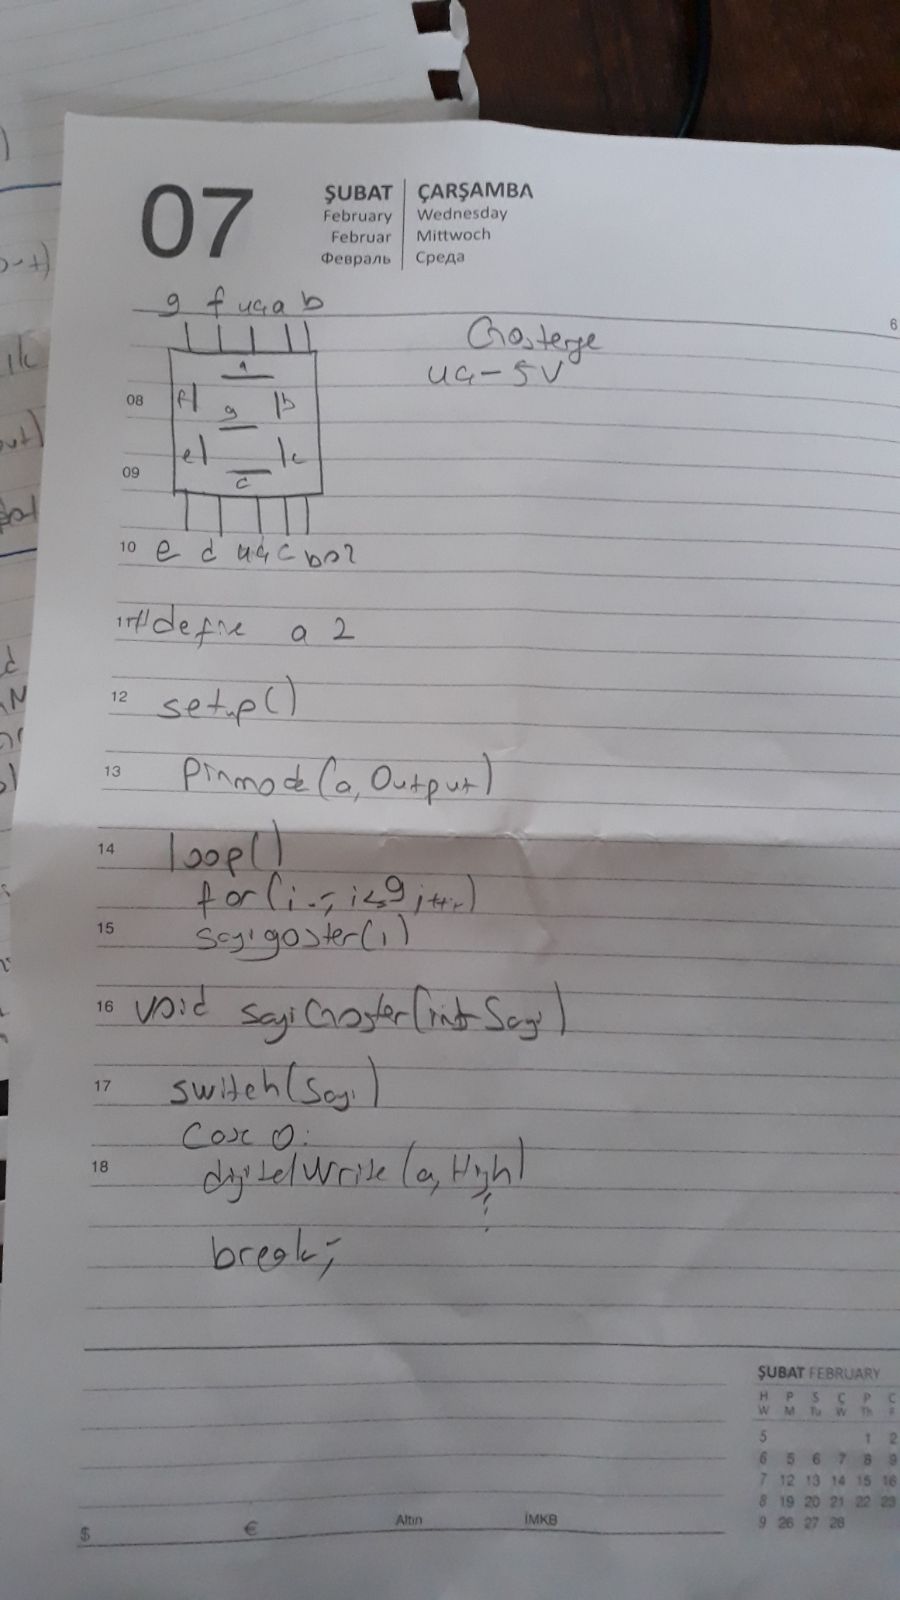 07
ŞUBAT ÇARŞAMBA
February Wednesday
Februar Mittwoch
Февраль Среда
g f uça b
6
Gosterge
uç - 5V
a
08 f b
g
e c
09
c
10 e d uç c
11 #define a 2
12 setup()
13 Pinmode(a, Output)
14 loop()
for(i
15 sayigoster(i)
16 void sayiGoster(int Sayi)
17 switch(Sayi)
Case 0:
18 digitalWrite(a, High)
break;
ŞUBAT FEBRUARY
H P S Ç P C
W M Tu W Th F
5 1 2
6 5 6 7 8 9
7 12 13 14 15 16
8 19 20 21 22 23
9 26 27 28
$ € Altın İMKB